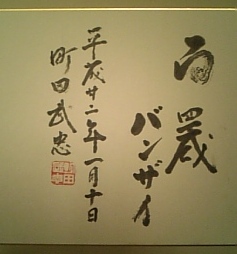 百歳
バンザイ
平成廿二年一月十日
町田武忠